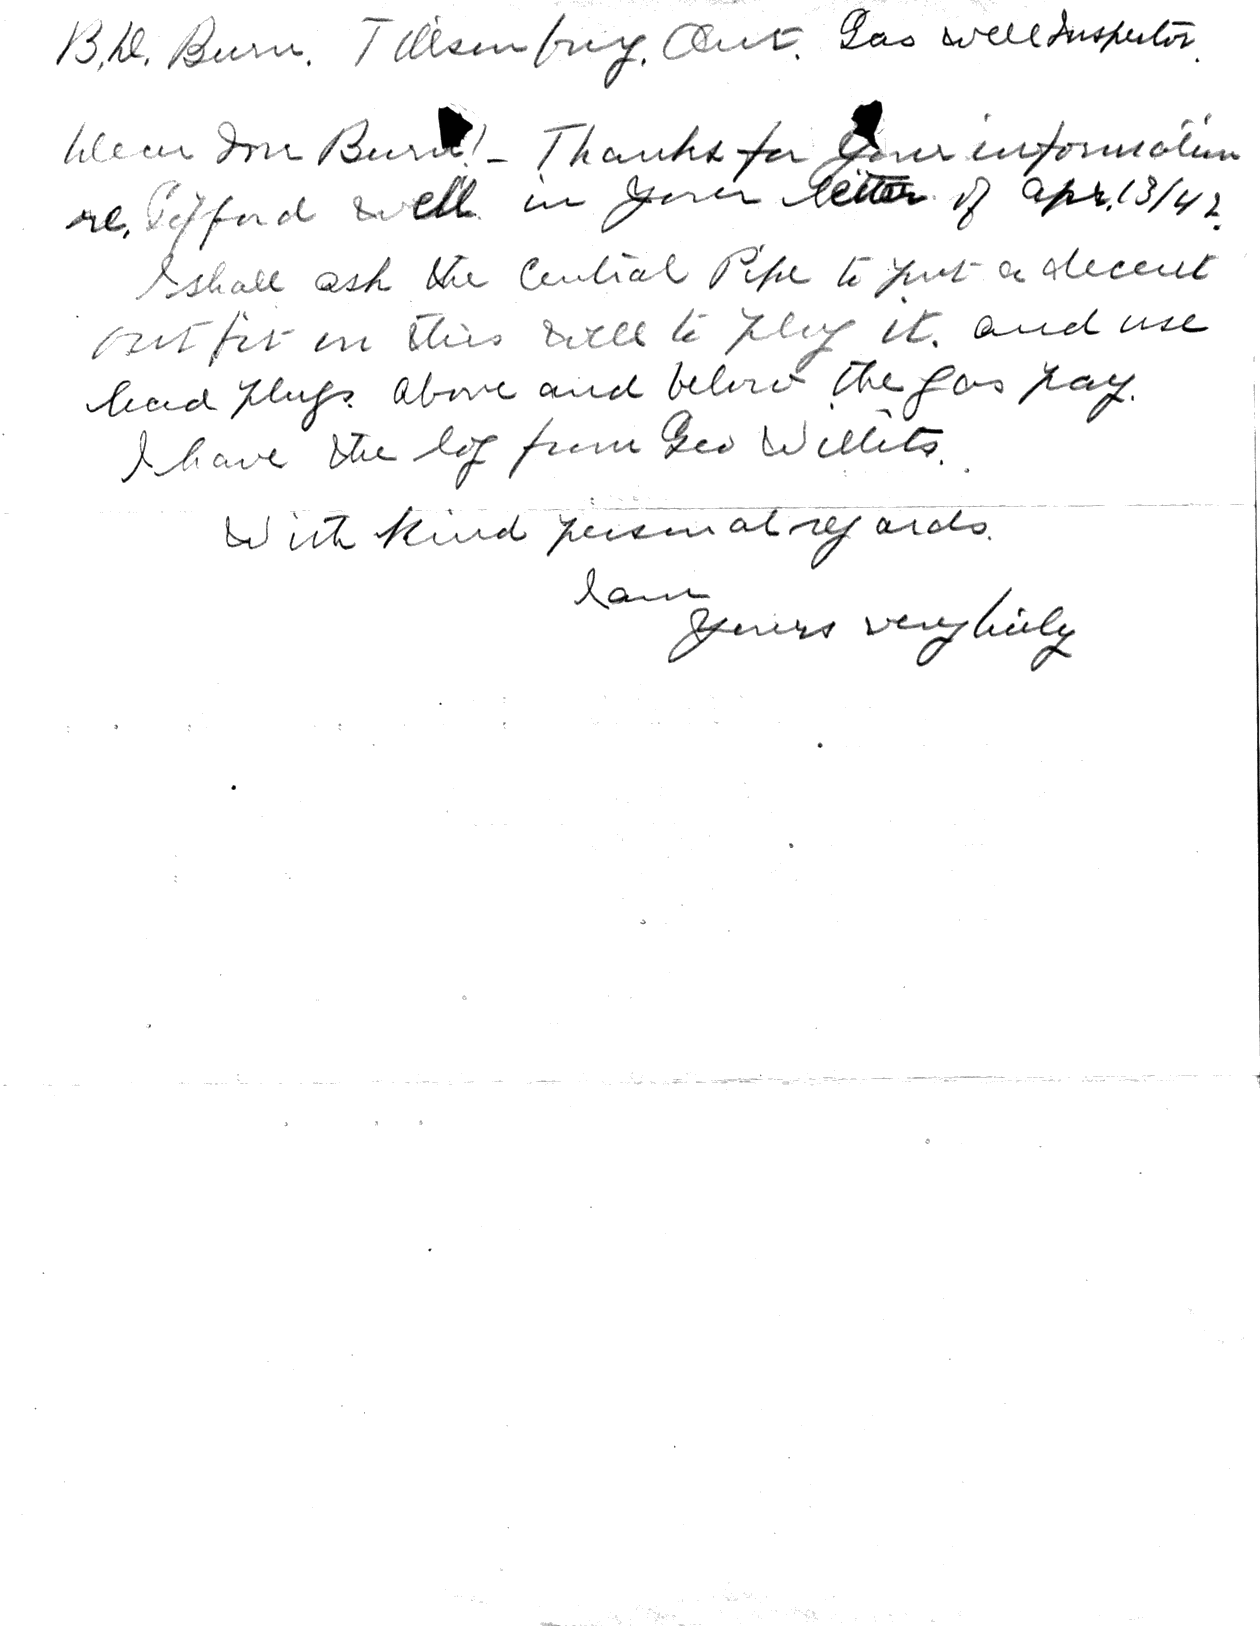 B.D. Burn. Tillsonburg. Ont. Gas well Inspector.
Dear Mr Burn!- Thanks for your information
re. Gifford well in your letter of Apr. 13/42.
I shall ask the Central Pipe to put a decent
outfit on this well to plug it. and use
lead plugs above and below the gas pay.
I have the log from Geo Willits.
With kind personal regards.
I am
Yours very truly